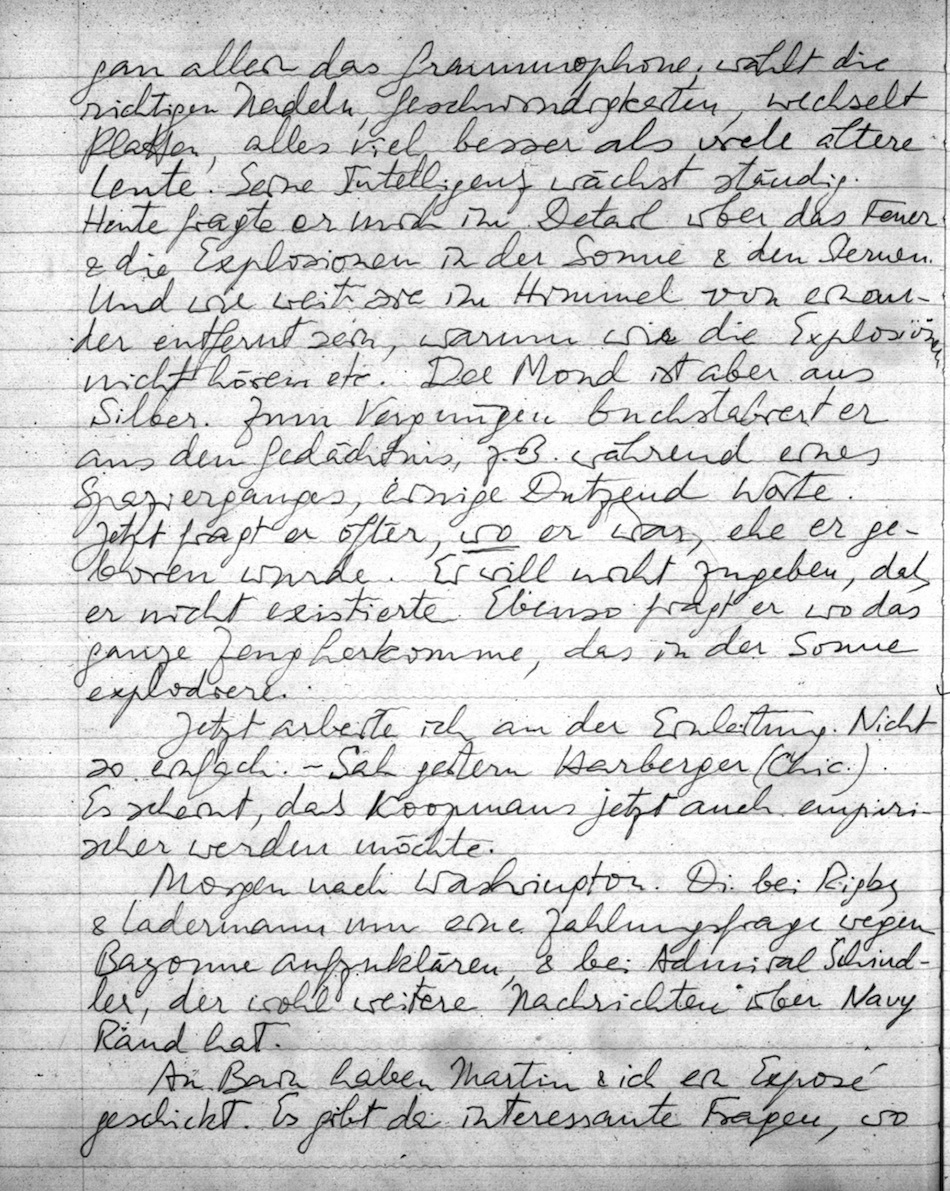 ganz allein das Grammophone, wählt die
richtigen Nadeln, Geschwindigkeiten, wechselt
Platten, alles viel besser als viele ältere
Leute. Seine Intelligenz wächst ständig.
Heute fragte er mich im Detail über das Feuer
& die Explosionen in der Sonne & den Sternen.
Und wie weit sie im Himmel von einan-
der entfernt sein, warum wir die Explosionen
nicht hören etc. Der Mond ist aber aus
Silber. Zum Vergnügen buchstabiert er
aus dem Gedächtnis, z.B. während eines
Spazierganges, einige Dutzend Worte.
Jetzt fragt er öfter, wo er war, ehe er ge-
boren wurde. Er will nicht zugeben, daß
er nicht existierte. Ebenso fragt er wo das
ganze Zeug herkomme, das in der Sonne
explodiere.
Jetzt arbeite ich an der Einleitung. Nicht
so einfach. – Sah gestern Harberger (Chic.).
Es scheint, das Koopmans jetzt auch empiri-
scher werden möchte.
Morgen nach Washington. Di. bei Rigby
& Ladermann um eine Zahlungsfrage wegen
Bayonne aufzuklären, & bei Admiral Schind-
ler, der wohl weitere Nachrichten über Navy
Rand hat.
An Bavn haben Martin & ich ein Exposé
geschickt. Es gibt da interessante Fragen, wo